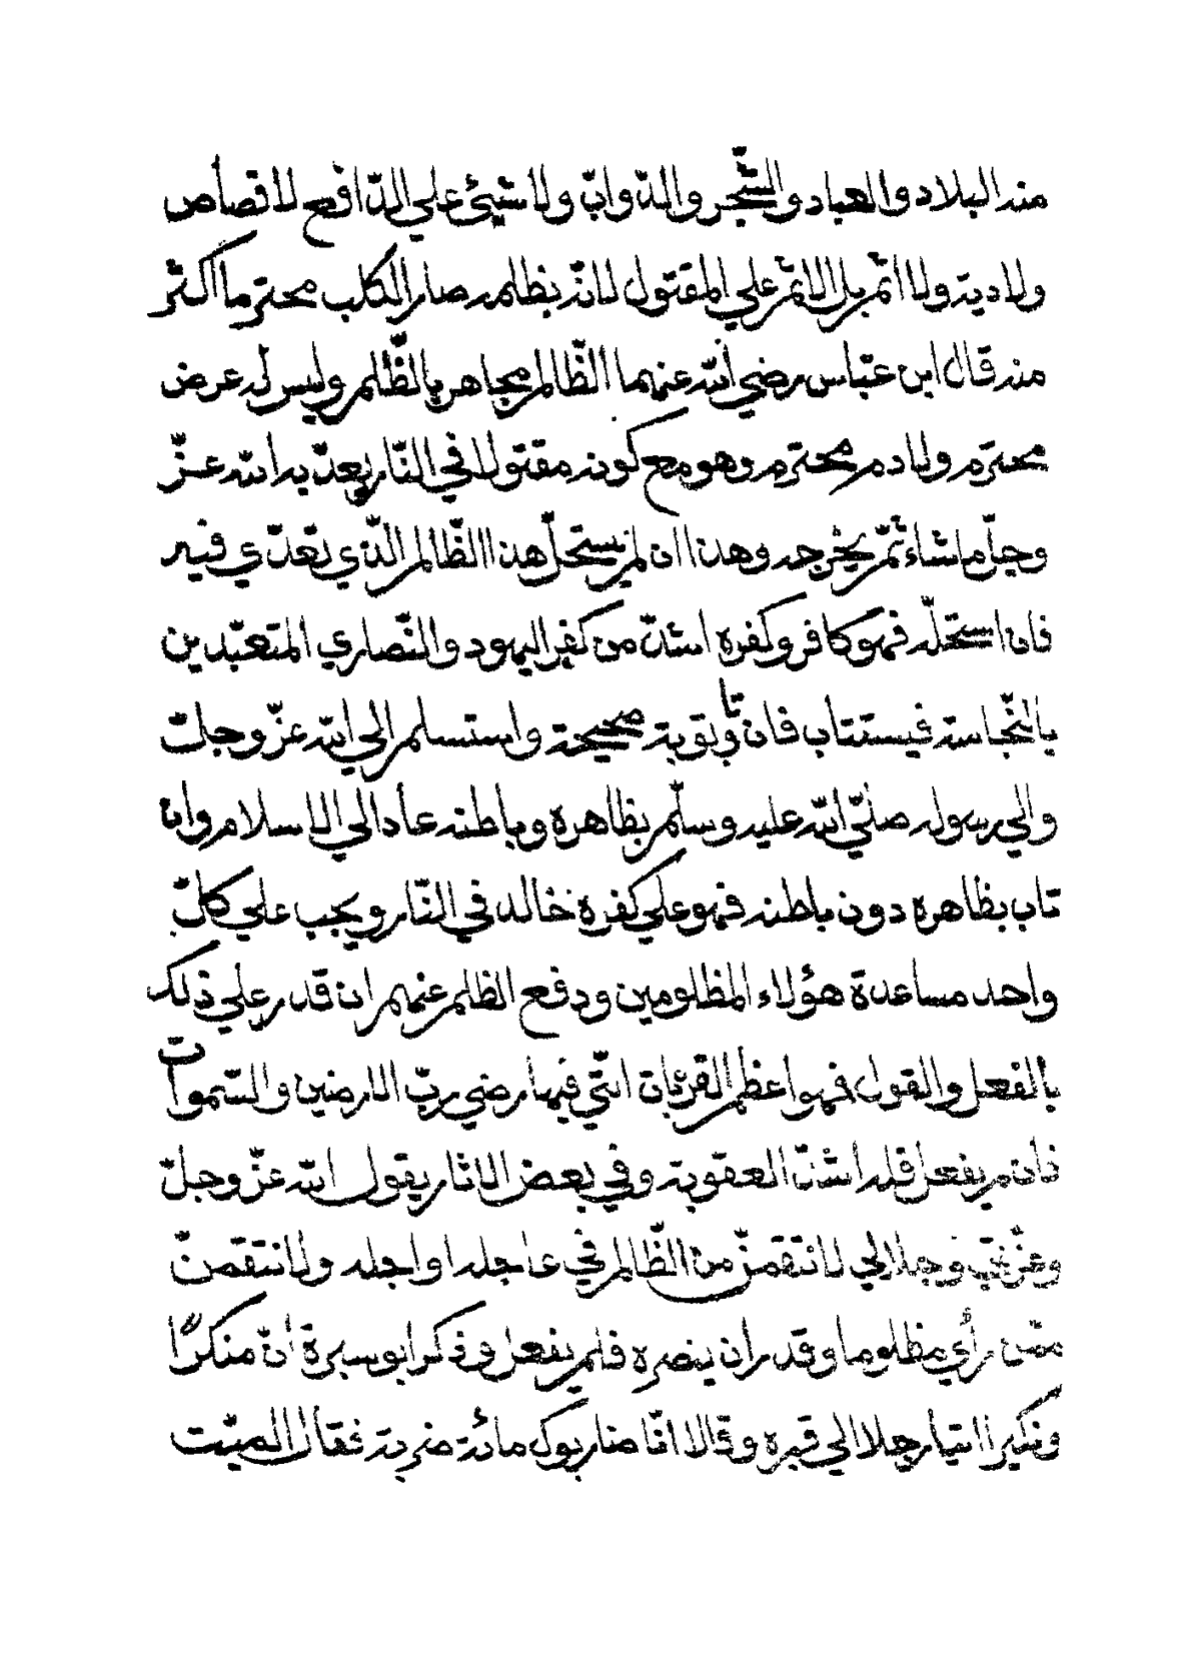 منه البلاد والعباد والشّجر والدّوابّ ولا شيئ علي الدّافع لا قصاص
ولا دية ولا اثم بل الاثم علي المقتول لانّه بظلمه صار الكلب محترما اكثر
منه قال ابن عبّاس رضي الله عنهما الظّالم مجاهر بالظّلم وليس له عرض
محترم ولا دم محترم وهو مع كونه مقتولا في النّار يعذّبه الله عزّ
وجلّ ما شاء ثمّ يخرجه وهذا ان لم يستحلّ هذا الظّالم الذّي تعدّي فيه
فان استحلّه فهو كافر وكفره اشدّ من كفر اليهود والنّصاري المتعبّدين
بالنّجاسة فيستتاب فان تاب توبة صحيحة واستسلم الي الله عزّ وجلّ
والي رسوله صلّي الله عليه وسلّم بظاهره وباطنه عاد الي الاسلام وان
تاب بظاهره دون باطنه فهو علي كفره خالد في النّار ويجب علي كلّ
واحد مساعدة هؤلاء المظلومين ودفع الظلم عنهم ان قدر علي ذلك
بالفعل والقول فهو اعظم القربان الّتي فيها رضي ربّ الارضين والسّموات
فان لم يفعل فله اشدّ العقوبة وفي بعض الاثار يقول الله عزّ وجلّ
وعزّتي وجلالي لانتقمنّ من الظّالم في عاجله او اجله ولانتقمنّ
ممّن رأي مظلوما وقدر ان ينصره فلم يفعل وذكر ابو سبرة انّ منكرًا
ونكيرا اتيا رجلا الي قبره وقالا انّا ضاربوك مائة ضربة فقال الميّت